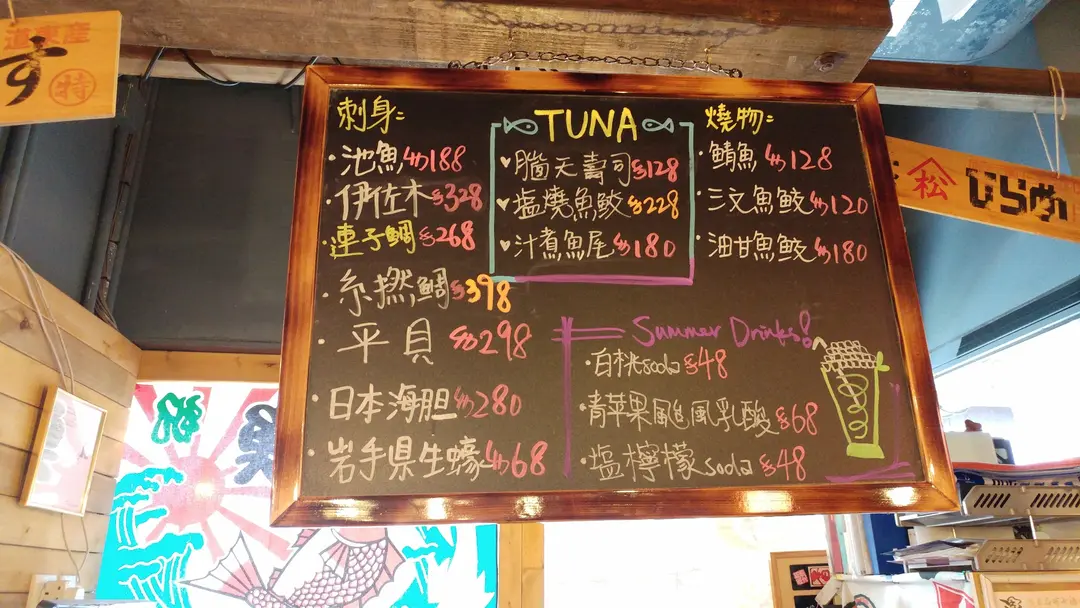 道東産
す
特
刺身:
・池魚 $188
・伊佐木 $328
・連子鯛 $268
・糸撚鯛 $398
・平貝 $298
・日本海胆 $280
・岩手県生蠔 $68
TUNA
♥腦天壽司 $128
♥塩燒魚鮫 $228
♥汁煮魚尾 $180
燒物:
・鯖魚 $128
・三文魚鮫 $120
・油甘魚鮫 $180
Summer Drinks!
・白桃soda $48
・青苹果颱風乳酸 $68
・塩檸檬soda $48
松
ひらめ